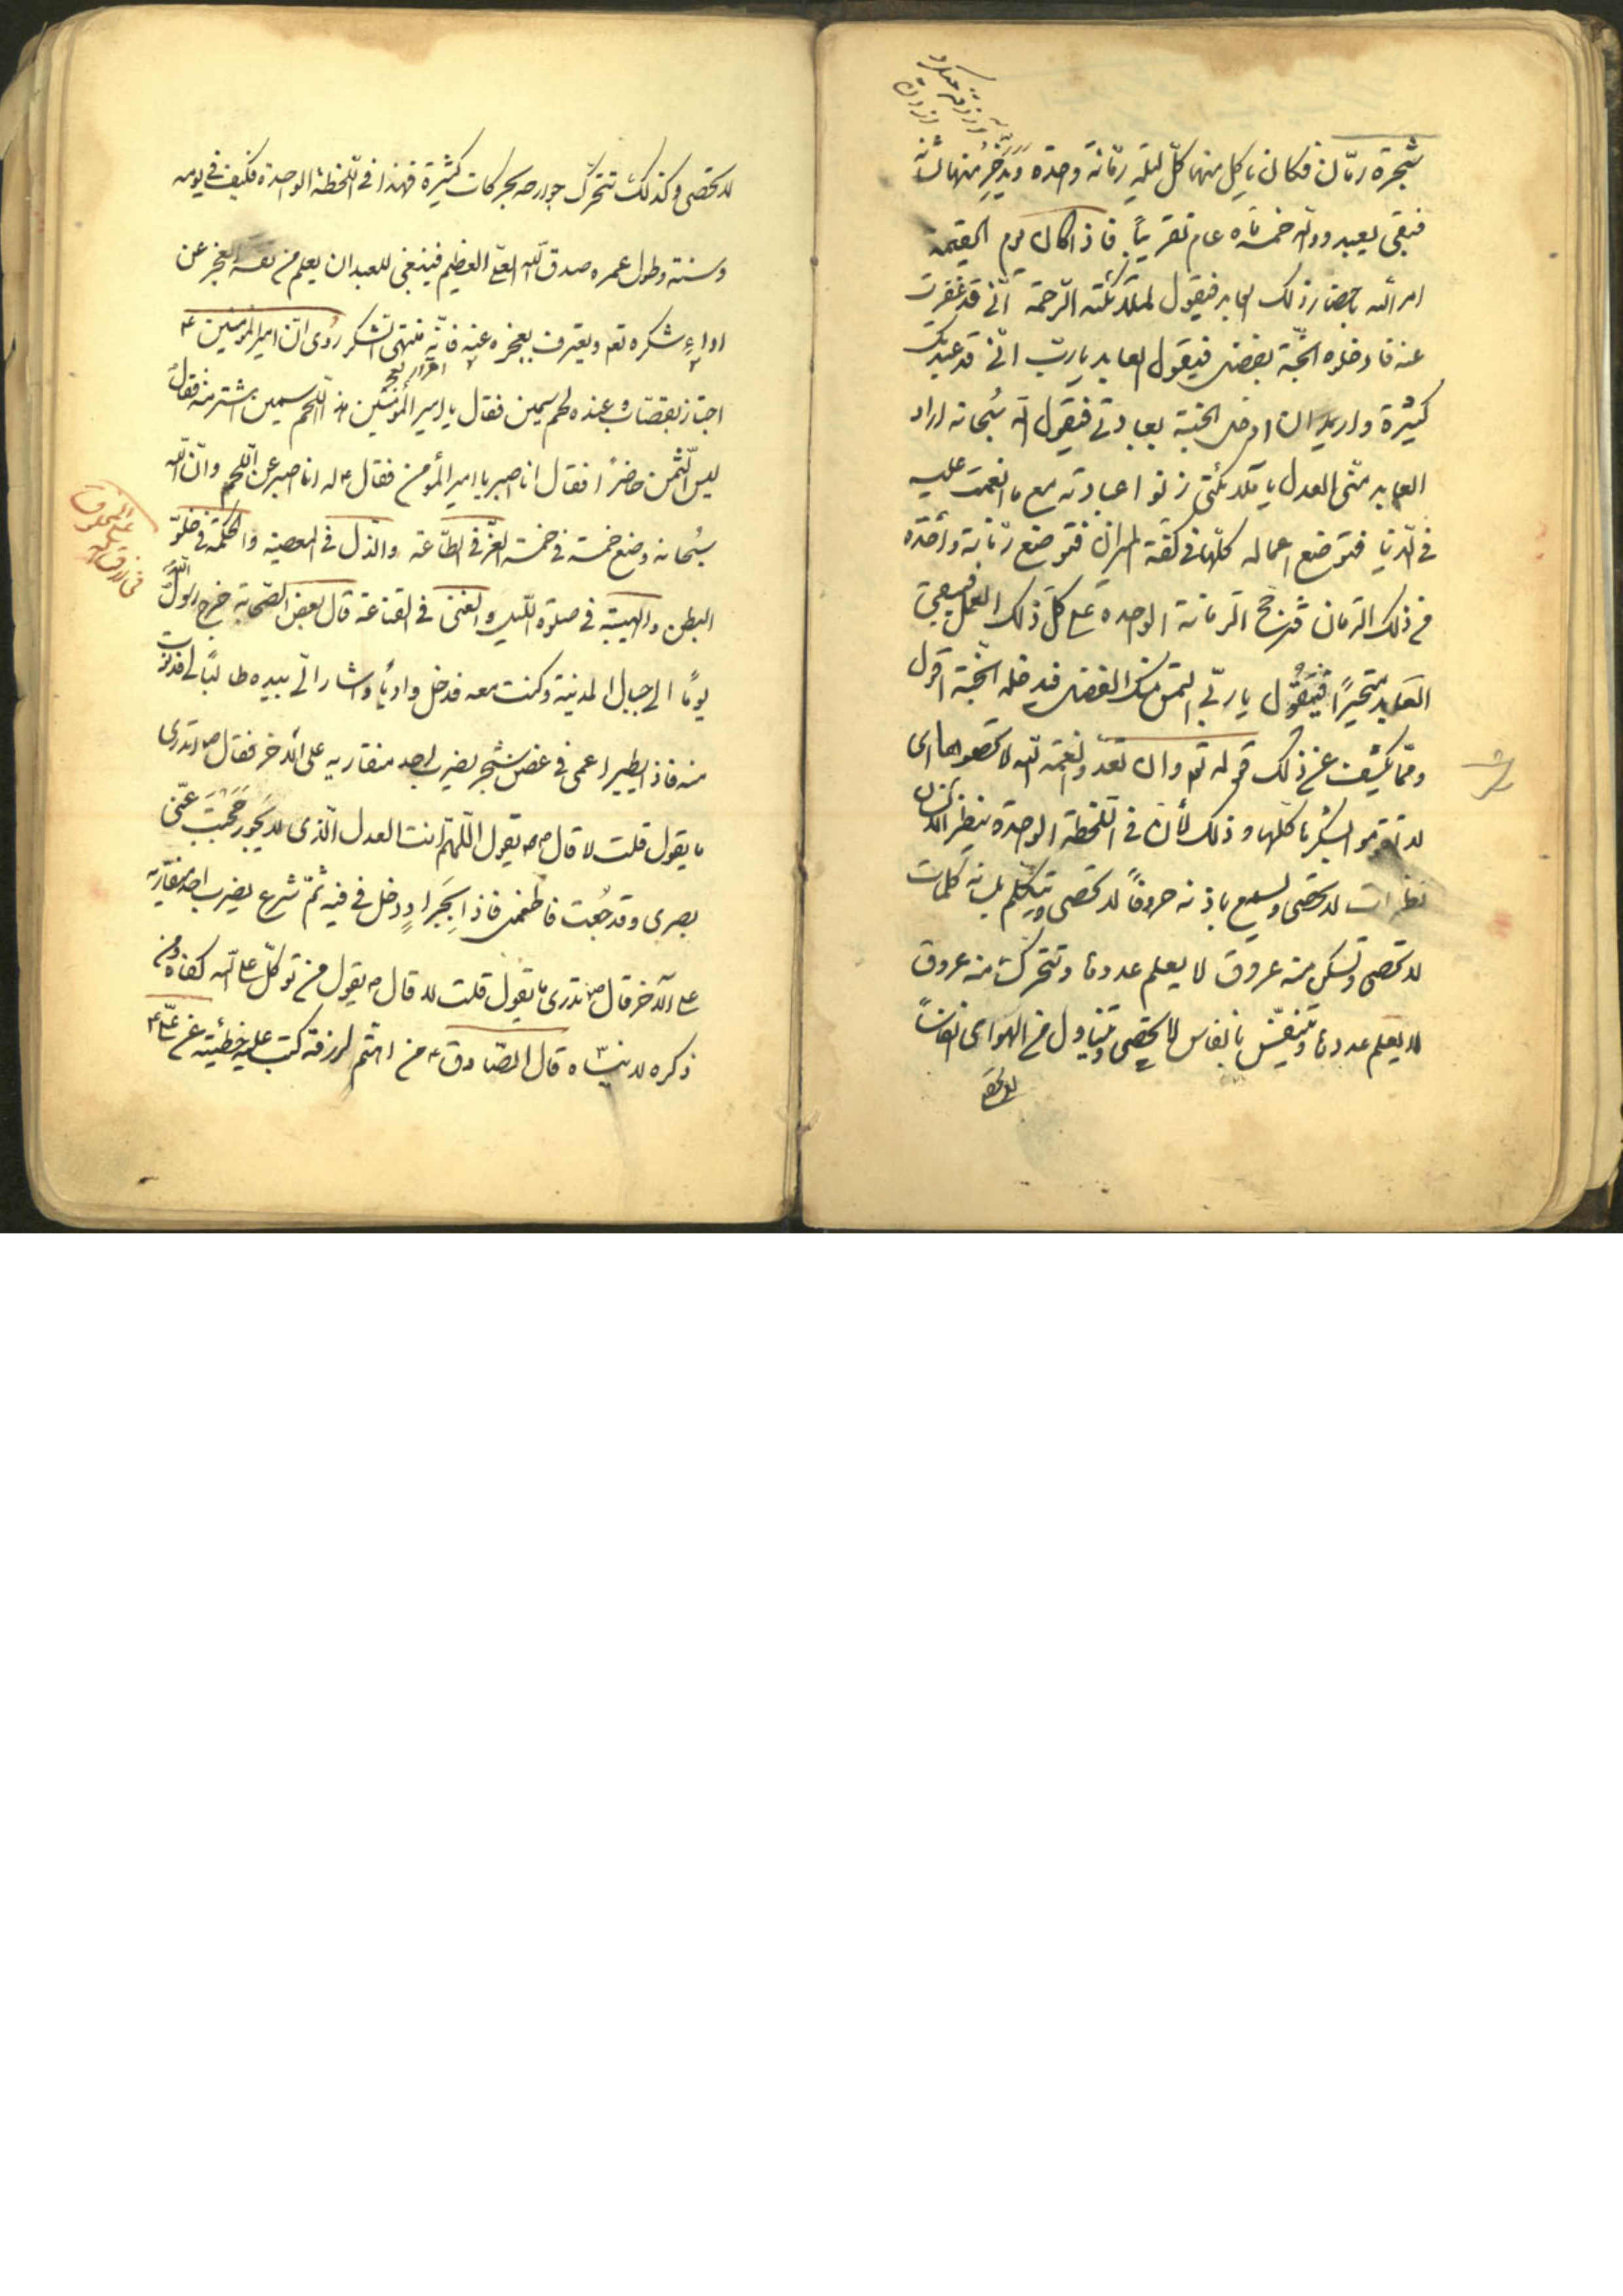 شجرة رمّان فكان ياكل منها كلّ ليلة رمّانة واحدة ويدّخر منها لشتائه
فبقى يعبد وربّه خمسمائة عام تقريباً فاذا كان يوم القيمة
امر الله باحضار ذلك العابد فيقول لملائكته الرّحمة انّى قد غفرت
عنه فادخلوه الجنّة بفضلى فيقول العابد يا ربّ انّى قد عبدتك
كثيرة واريد ان ادخل الجنّة بعبادتى فيقول الله سبحانه اراد
العابد منّى العدل يا ملائكتى زنوا عبادته مع ما انعمت عليه
فى الدّنيا فتوضع اعماله كلّها فى كفّة الميزان فتوضع رمّانة واحدة
من ذلك الرمان فترجح الرمانة الواحدة على كلّ ذلك العمل فيبقى
العابد متحيّراً فيقول يا ربّى التمس منك الفضل فيدخله الجنّة اقول
وممّا يكشف عن ذلك قوله تع وان تعدّوا نعمة الله لا تحصوها اى
لا تقوموا بشكرها كلّها وذلك لأنّ فى اللّحظة الواحدة ينظر الانسان
نظرات لا تحصى ويسمع باذنه حروفاً لا تحصى ويتكلّم بلسانه كلمات
لا تحصى وتسكن منه عروق لا يعلم عددها وتتحرّك منه عروق
لا يعلم عددها ويتنفّس بانفاس لا تحصى ويتناول من الهواى انفاساً
لا تحصى
لا تحصى وكذلك تتحرّك جوارحه بحركات كثيرة فهذا فى اللّحظة الواحدة فكيف فى يومه
وسنته وطول عمره صدق الله العلىّ العظيم فينبغى للعبد ان يعلم من نفسه العجز عن
اداء شكره تع ويعترف بعجزه عنه فانّه منتهى الشكر روى انّ امير المؤمنين ع
اجتاز بقصّاب وعنده لحم سمين فقال يا امير المؤمنين هذا اللّحم سمين اشتر منه فقال
ليس الثّمن حاضراً فقال انا اصبر يا امير المؤمن فقال ع له انا اصبر عن اللّحم وانّ الله
سبحانه وضع خمسة فى خمسة العزّ فى الطّاعة والذّل فى المعصية والحكمة فى خلوّ
البطن والهيبة فى صلوة اللّيل والغنى فى القناعة قال بعض الصّحابة خرج رسول الله
يوماً الى جبال المدينة وكنت معه فدخل وادياً واشار الىّ بيده طالباً لى فدنوت
منه فاذا بطير اعمى فى غصن شجر يضرب احد منقاريه على الآخر فقال ص اتدرى
ما يقول قلت لا قال ص يقول اللّهمّ انت العدل الّذى لا يجور حجبت عنّى
بصرى وقد جعت فاطعمنى فاذا بجراد ودخل فى فيه ثمّ شرع يضرب احد منقاريه
على الآخر قال ص تدرى ما يقول قلت لا قال ص يقول من توكّل على الله كفاه ومن
ذكره لا ينساه قال الصّادق ع من اهتمّ لرزقه كتب عليه خطيئة عن علىّ ع